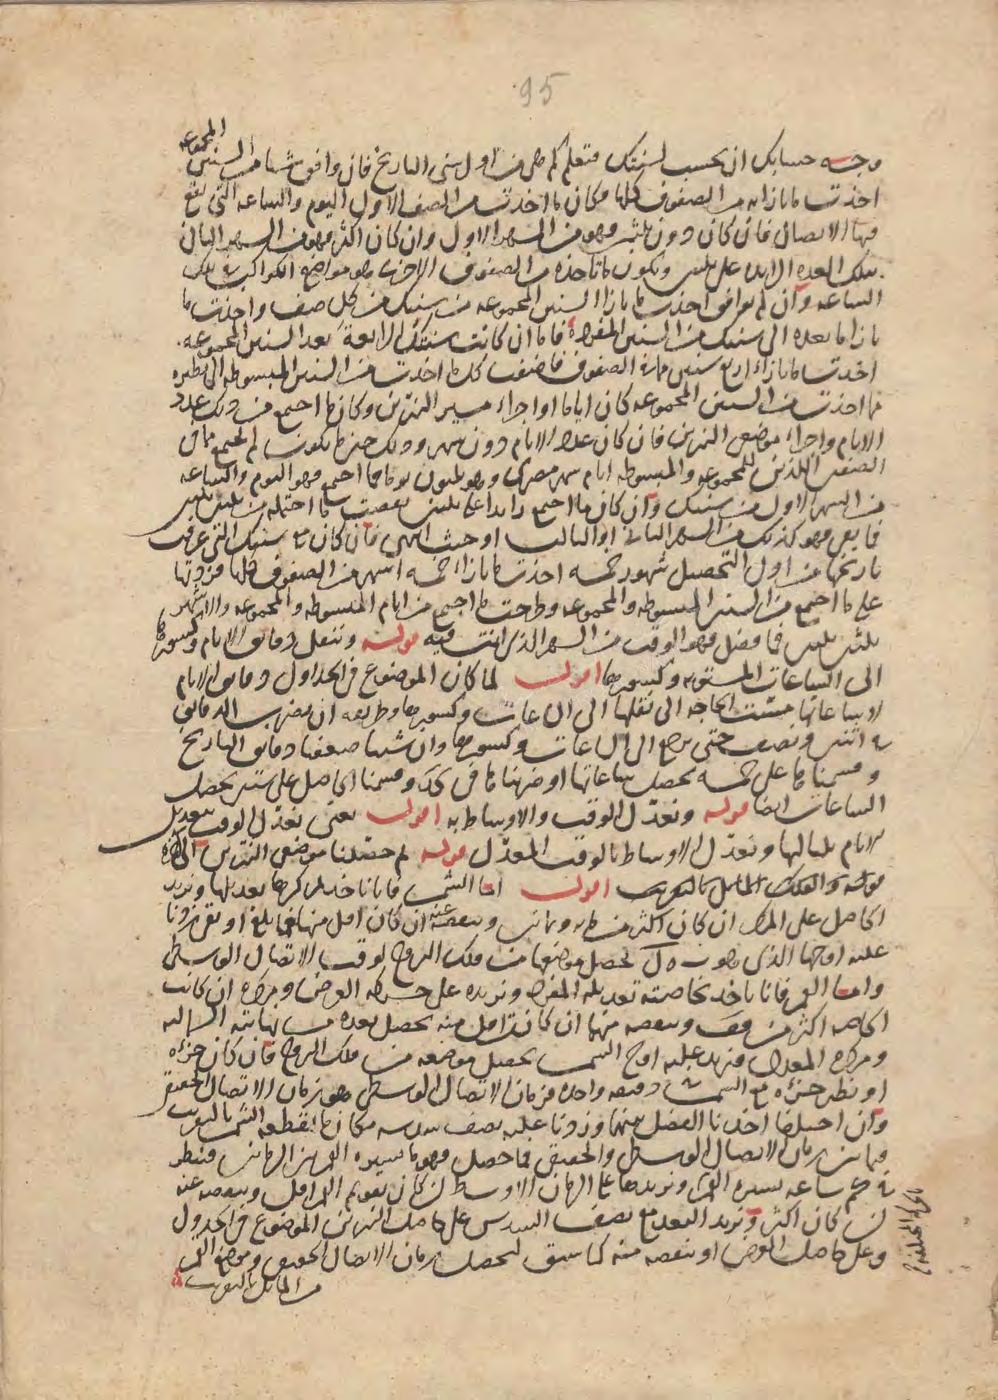 95
المجموعه
وجه حسابك ان تحسب لسنتك فتعلم كم هي من اول سني التاريخ فان وافق شيا من السنين
اخذت ما بازايه من الصفوف كلها فكان ما اخذت من الصف الاول اليوم والساعه التي يقع
فيها الاتصال فان كان دون ثلثين فهو من الشهر الاول وان كان اكثر فهو من الشهر الثاني
بتلك العده الزايده على ثلثين ويكون ما تاخذه من الصفوف الاخرى هو مواضع الكواكب في تلك
الساعه وان لم يوافق اخذت ما بازا السنين المجموعه من سنينك من كل صف واخذت ما
بازا ما بعده الى سنينك من السنين المفرده فاما ان كانت سنتك الرابعة بعد السنين المجموعه
اخذت ما بازاء اربع سنين من الصفوف فاضفت كل ما اخذت من السنين المبسوطه الى نظيره
مما اخذت من السنين المجموعه كان اياما او اجزاء مسير النيرين وكان ما اجتمع من ذلك عدد
الايام واجزاء موضعي النيرين فان كان عدد الايام دون شهر وذلك حين ما يكون لم يجتمع من
الصفين اللذين للمجموعه والمبسوطه ايام شهر مصري وهو ثلثون يوما فما اجتمع فهو اليوم والساعه
من الشهر الاول من سنتك وان كان ما اجتمع زايدا على ثلثين نقصت ما احتمله من ثلثين ثلثين
فما بقي فهو كذلك من الشهر الثاني او الثالث او حيث انتهى فان كان مع سنينك التي عرفت
تاريخها من اول التحصيل شهور خمسه اخذت ما بازا خمسه اشهر من الصفوف كلها فزدتها
على ما اجتمع من السنين المبسوطه والمجموعه وطرحت ما اجتمع من ايام المبسوطه والمجموعه والاشهر
ثلثين ثلثين فما فضل فهو الوقت من الشهر الذي انت فيه قوله وننقل دقايق الايام وكسورها
الى الساعات المستويه وكسورها اقول لما كان الموضوع في الجداول دقايق الايام
لا ساعاتها مست الحاجه الى نقلها الى الساعات وكسورها وطريقه ان نضرب الدقايق
في اثنين ونصف حتى يرجع الى الساعات وكسورها وان شينا ضعفنا دقايق التاريخ
وقسمناها على خمسه يحصل ساعاتها او ضربناها في كد وقسمنا الحاصل على ستين يحصل
الساعات ايضا قوله ونعدل الوقت والاوساط به اقول يعني نعدل الوقت بتعديل
الايام بلياليها ونعدل الاوساط بالوقت المعدل قوله ثم حصلنا موضعي النيرين الى اخره
قوله والفلك المايل بالتقريب اقول اما الشمس فانا ناخذ لمركزها تعديلها ونزيد
الحاصل على المركز ان كان اكثر من مايه وثمانين وننقصه عنه ان كان اقل منها فما بلغ او بقي زدنا
عليه اوجها الذي هو يحصل موضعها من فلك البروج لوقت الاتصال الوسطي
واما القمر فانا ناخذ بخاصته تعديله المفرد ونزيده على حركه العرض ومركزه ان كانت
الخاصه اكثر من قف وننقصه منها ان كانت اقل منه يحصل بعده من نهايته الشماليه
ومركزه المعدل فنزيد عليه اوج الشمس يحصل موضعه من فلك البروج فان كان جزؤه
او نظير جزؤه مع الشمس في دقيقه واحده فزمان الاتصال الوسطي هو زمان الاتصال الحقيقي
وان اختلفا اخذنا الفضل بينهما وزدنا عليه نصف سدسه فكان ما يقطعه الشمس بالتقريب
فيما بين زماني الاتصال الوسطي والحقيقي فما حصل فهو ما يسيره القمر بين الزمانين فننظر
في كم ساعه يسيره القمر ونزيدها على الزمان الاوسط ان كان تقويم القمر اقل وننقصه عنه
ان كان اكثر ونزيد البعد مع نصف السدس على حاصل النيرين الموضوع في الجدول
وعلى حاصل العرض او ننقصه منه كما سبق ليحصل زمان الاتصال الحقيقي وموضع القمر
من المايل بالتقريب